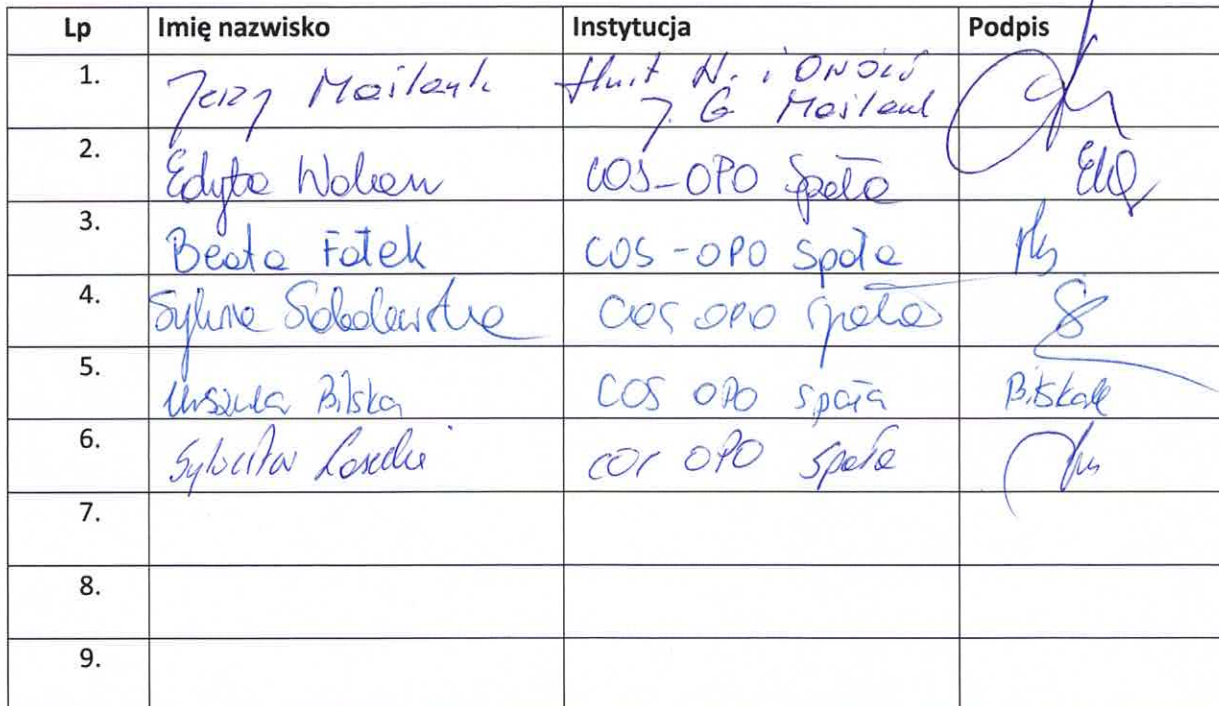 Lp Imię nazwisko Instytucja Podpis
1. Jerzy Maślank Hurt N. i
J. G Maślank
2. Edyta COS-OPO Spała
3. Beata Fałek COS-OPO Spała
4. Sylwia Sobolewska COS OPO Spała
5. Urszula Bilska COS OPO Spała Bilska
6. Sylwester Lasecki COS OPO Spała
7.
8.
9.